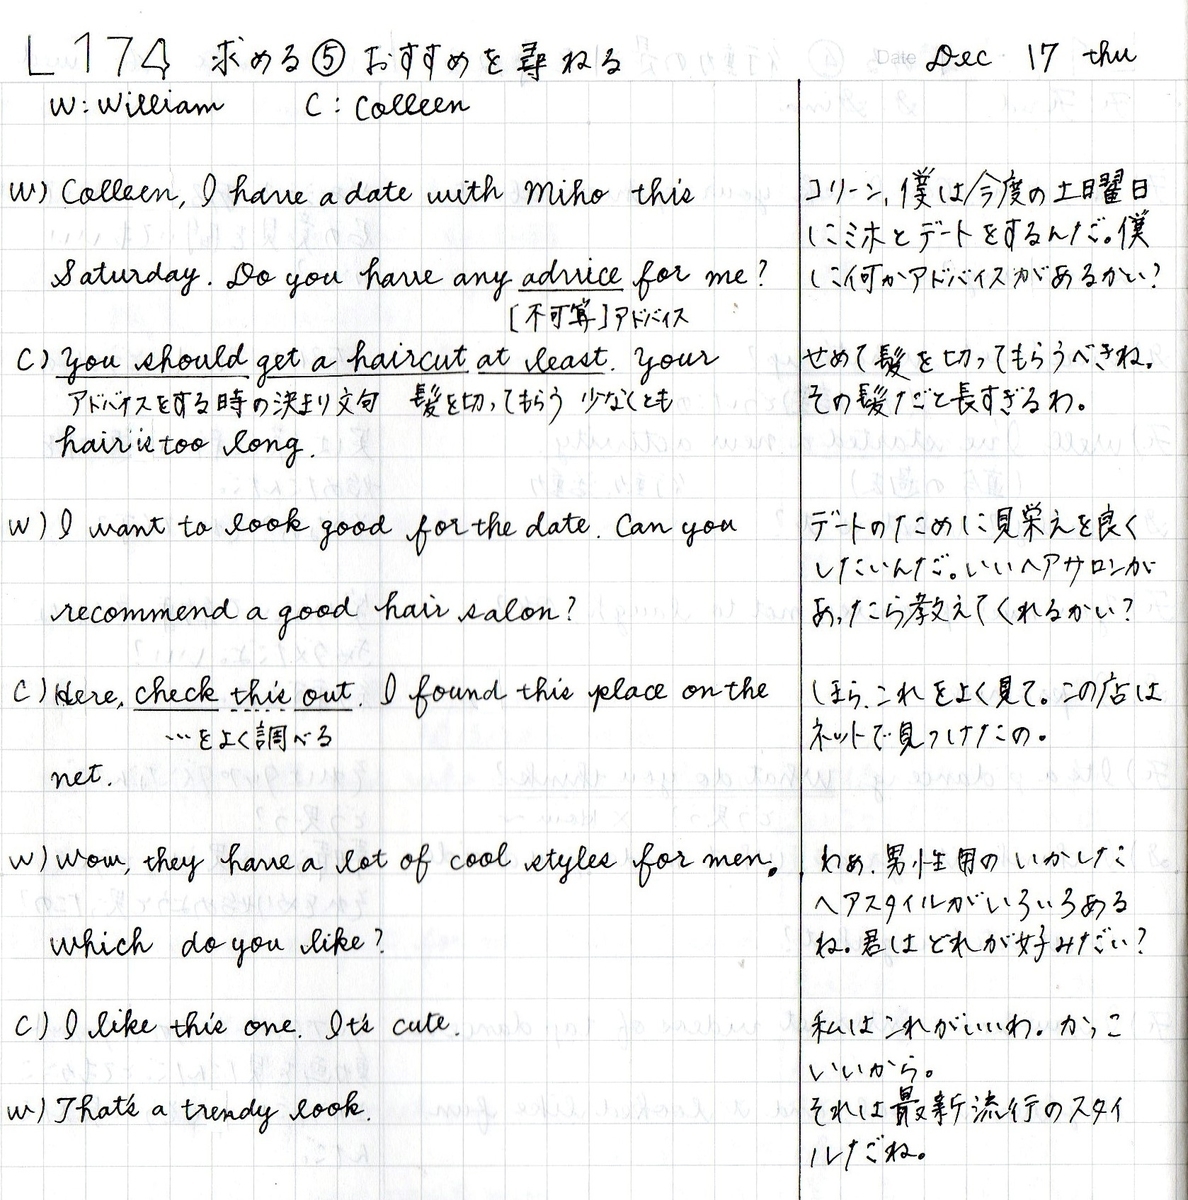 L174 求める⑤ おすすめを尋ねる Date Dec 17 thu
W: William C: Colleen
W) Colleen, I have a date with Miho this
Saturday. Do you have any advice for me?
[不可算]アドバイス
C) You should get a haircut at least. Your
アドバイスをする時の決まり文句 髪を切ってもらう 少なくとも
hair is too long.
W) I want to look good for the date. Can you
recommend a good hair salon?
C) Here, check this out. I found this place on the
…をよく調べる
net.
W) Wow, they have a lot of cool styles for men.
Which do you like?
C) I like this one. It's cute.
W) That's a trendy look.
コリーン, 僕は今度の土曜日
にミホとデートをするんだ。僕
に何かアドバイスがあるかい?
せめて髪を切ってもらうべきね。
その髪だと長すぎるわ。
デートのために見栄えを良く
したいんだ。いいヘアサロンが
あったら教えてくれるかい?
ほら、これをよく見て。この店は
ネットで見つけたの。
わぁ、男性用のいかした
ヘアスタイルがいろいろある
ね。君はどれが好みだい?
私はこれがいいわ。かっこ
いいから。
それは最新流行のスタイ
ルだね。